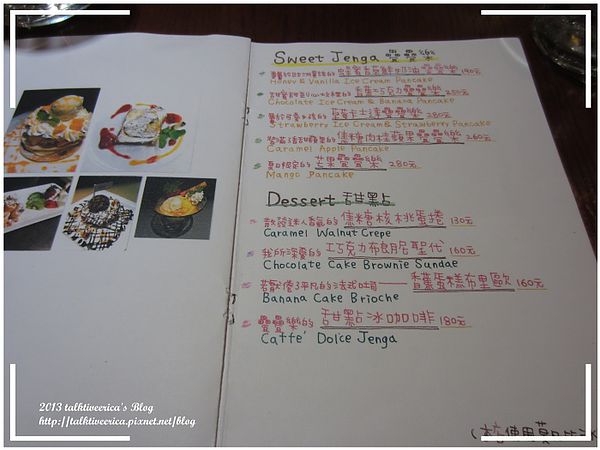 Sweet Jenga 疊疊樂
蜂蜜香草鮮奶油疊疊樂 190元
Honey & Vanilla Ice Cream Pancake
香蕉巧克力疊疊樂 250元
Chocolate Ice Cream & Banana Pancake
草莓卡士達疊疊樂 280元
Strawberry Ice Cream & Strawberry Pancake
焦糖肉桂蘋果疊疊樂 260元
Caramel Apple Pancake
夏日限定的 芒果疊疊樂 280元
Mango Pancake
Dessert 甜點
散發迷人香氣的 焦糖核桃蛋捲 130元
Caramel Walnut Crepe
我所深愛的 巧克力布朗尼聖代 160元
Chocolate Cake Brownie Sundae
若厭倦了平凡的法式吐司 香蕉蛋糕布里歐 160元
Banana Cake Brioche
疊疊樂的 甜點冰咖啡 180元
Caffe' Dolce Jenga
2013 talktiveerica's Blog
http://talktiveerica.pixnet.net/blog